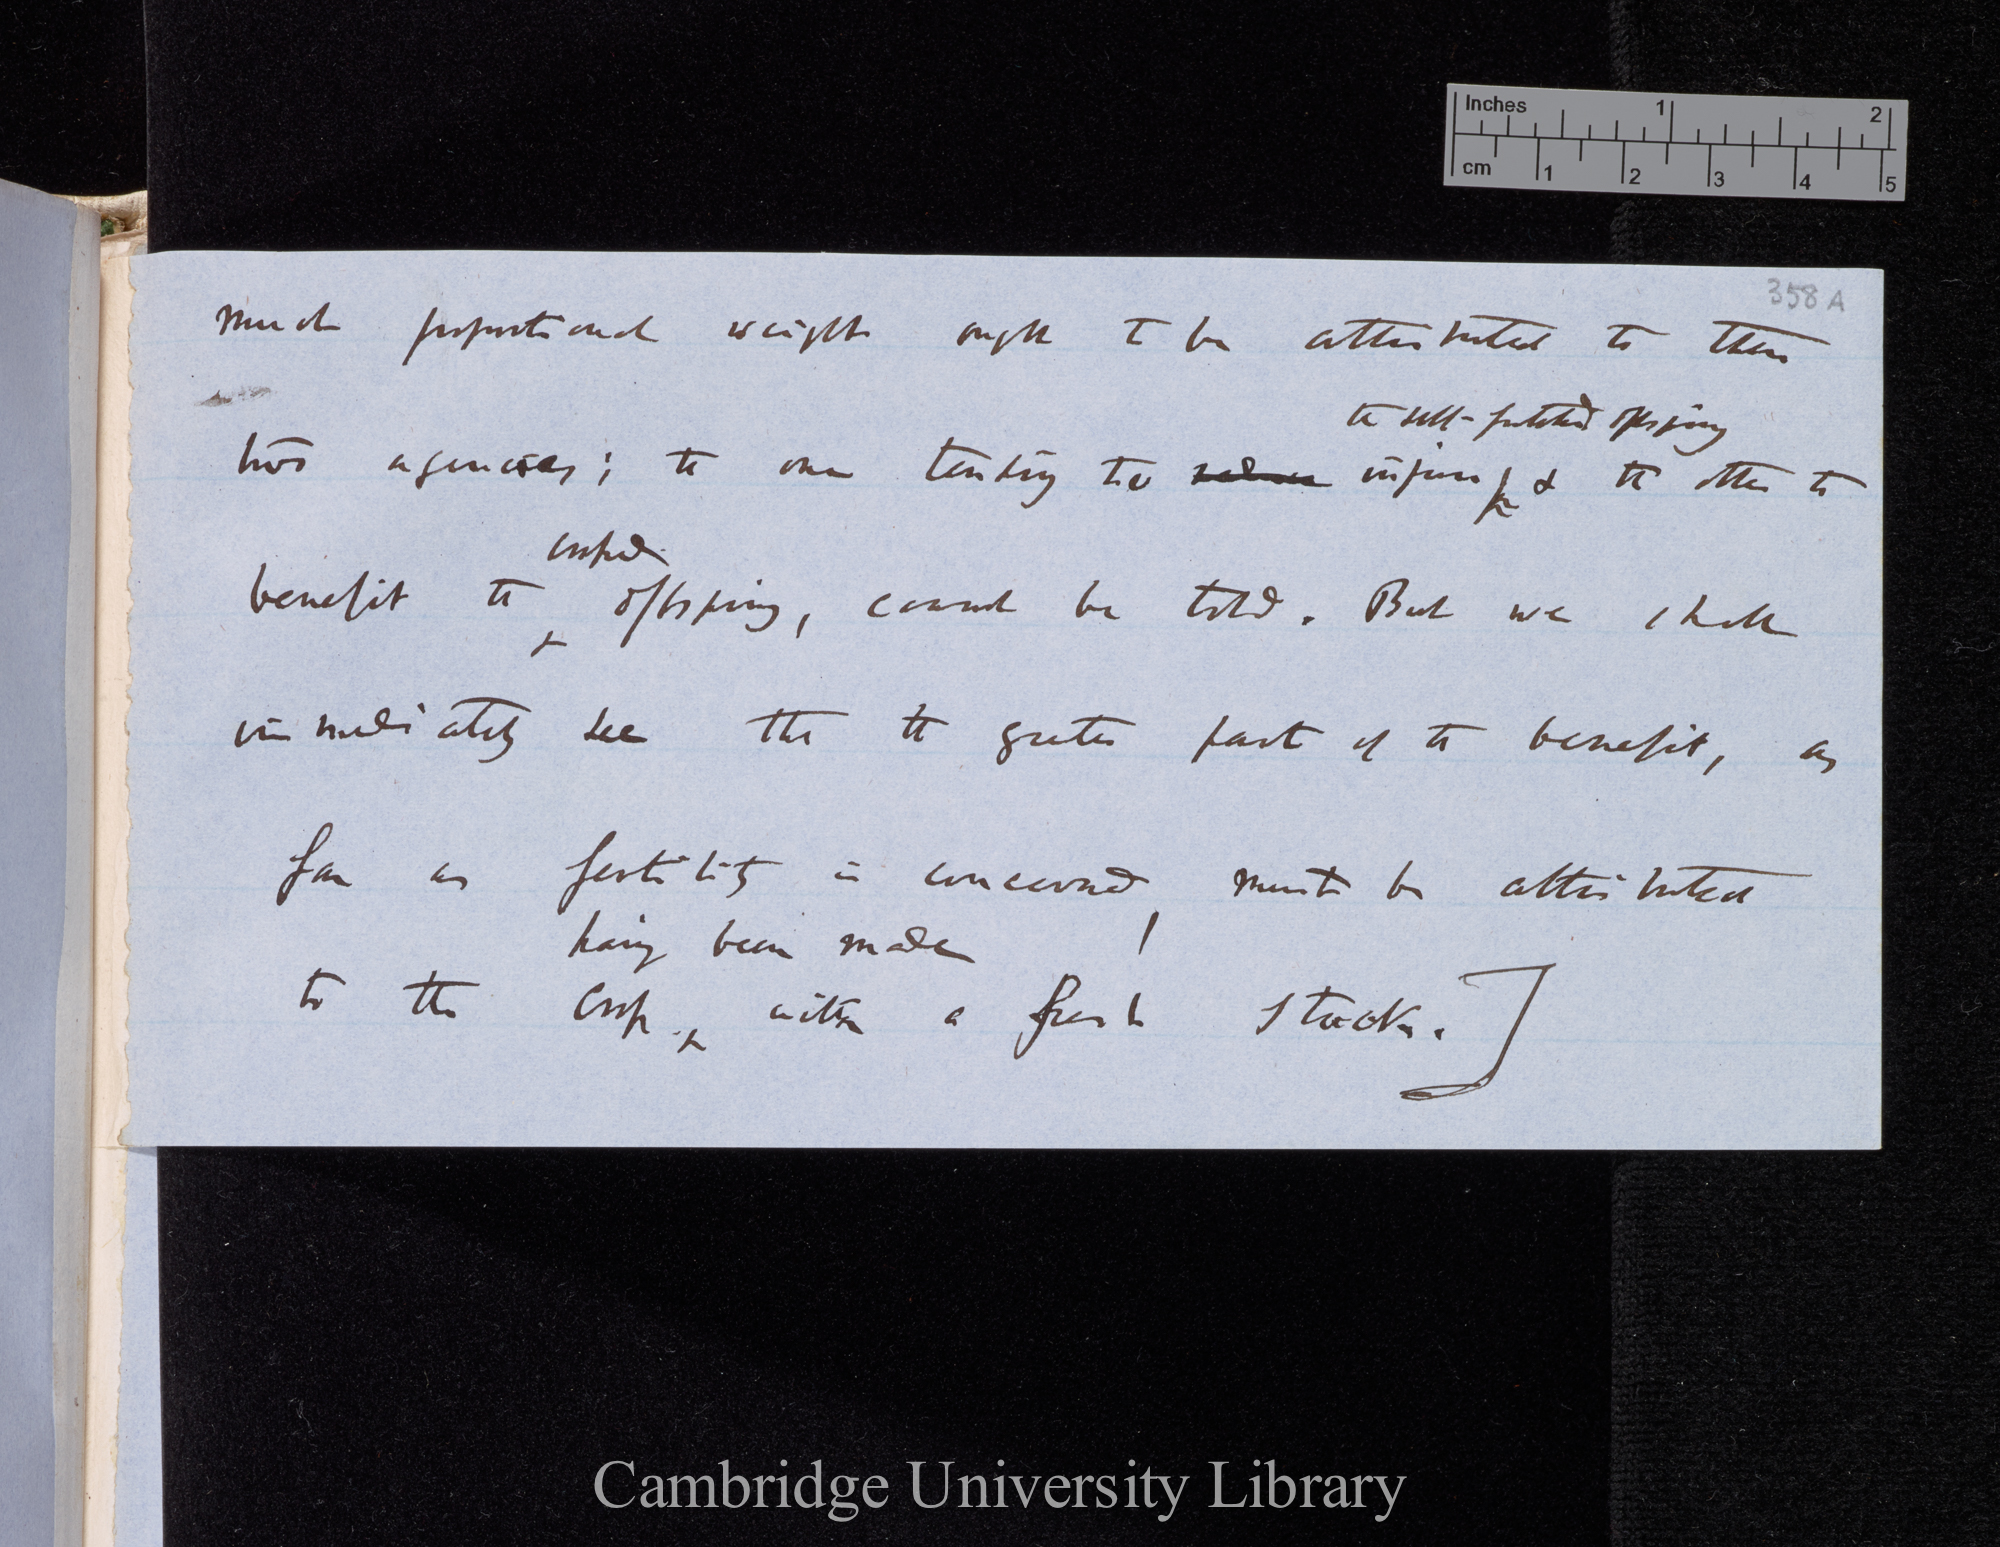 Inches 1 2
cm 1 2 3 4 5
358 A
much proportional weight ought to be attributed to these
the self-fertilised offspring
two agencies; the one tending to reduce injure & the other to
crossed
benefit the offspring, cannot be told. But we shall
immediately see that the greater part of the benefit, as
far as fertility is concerned, must be attributed
having been made
to the cross with a fresh stock.]
Cambridge University Library